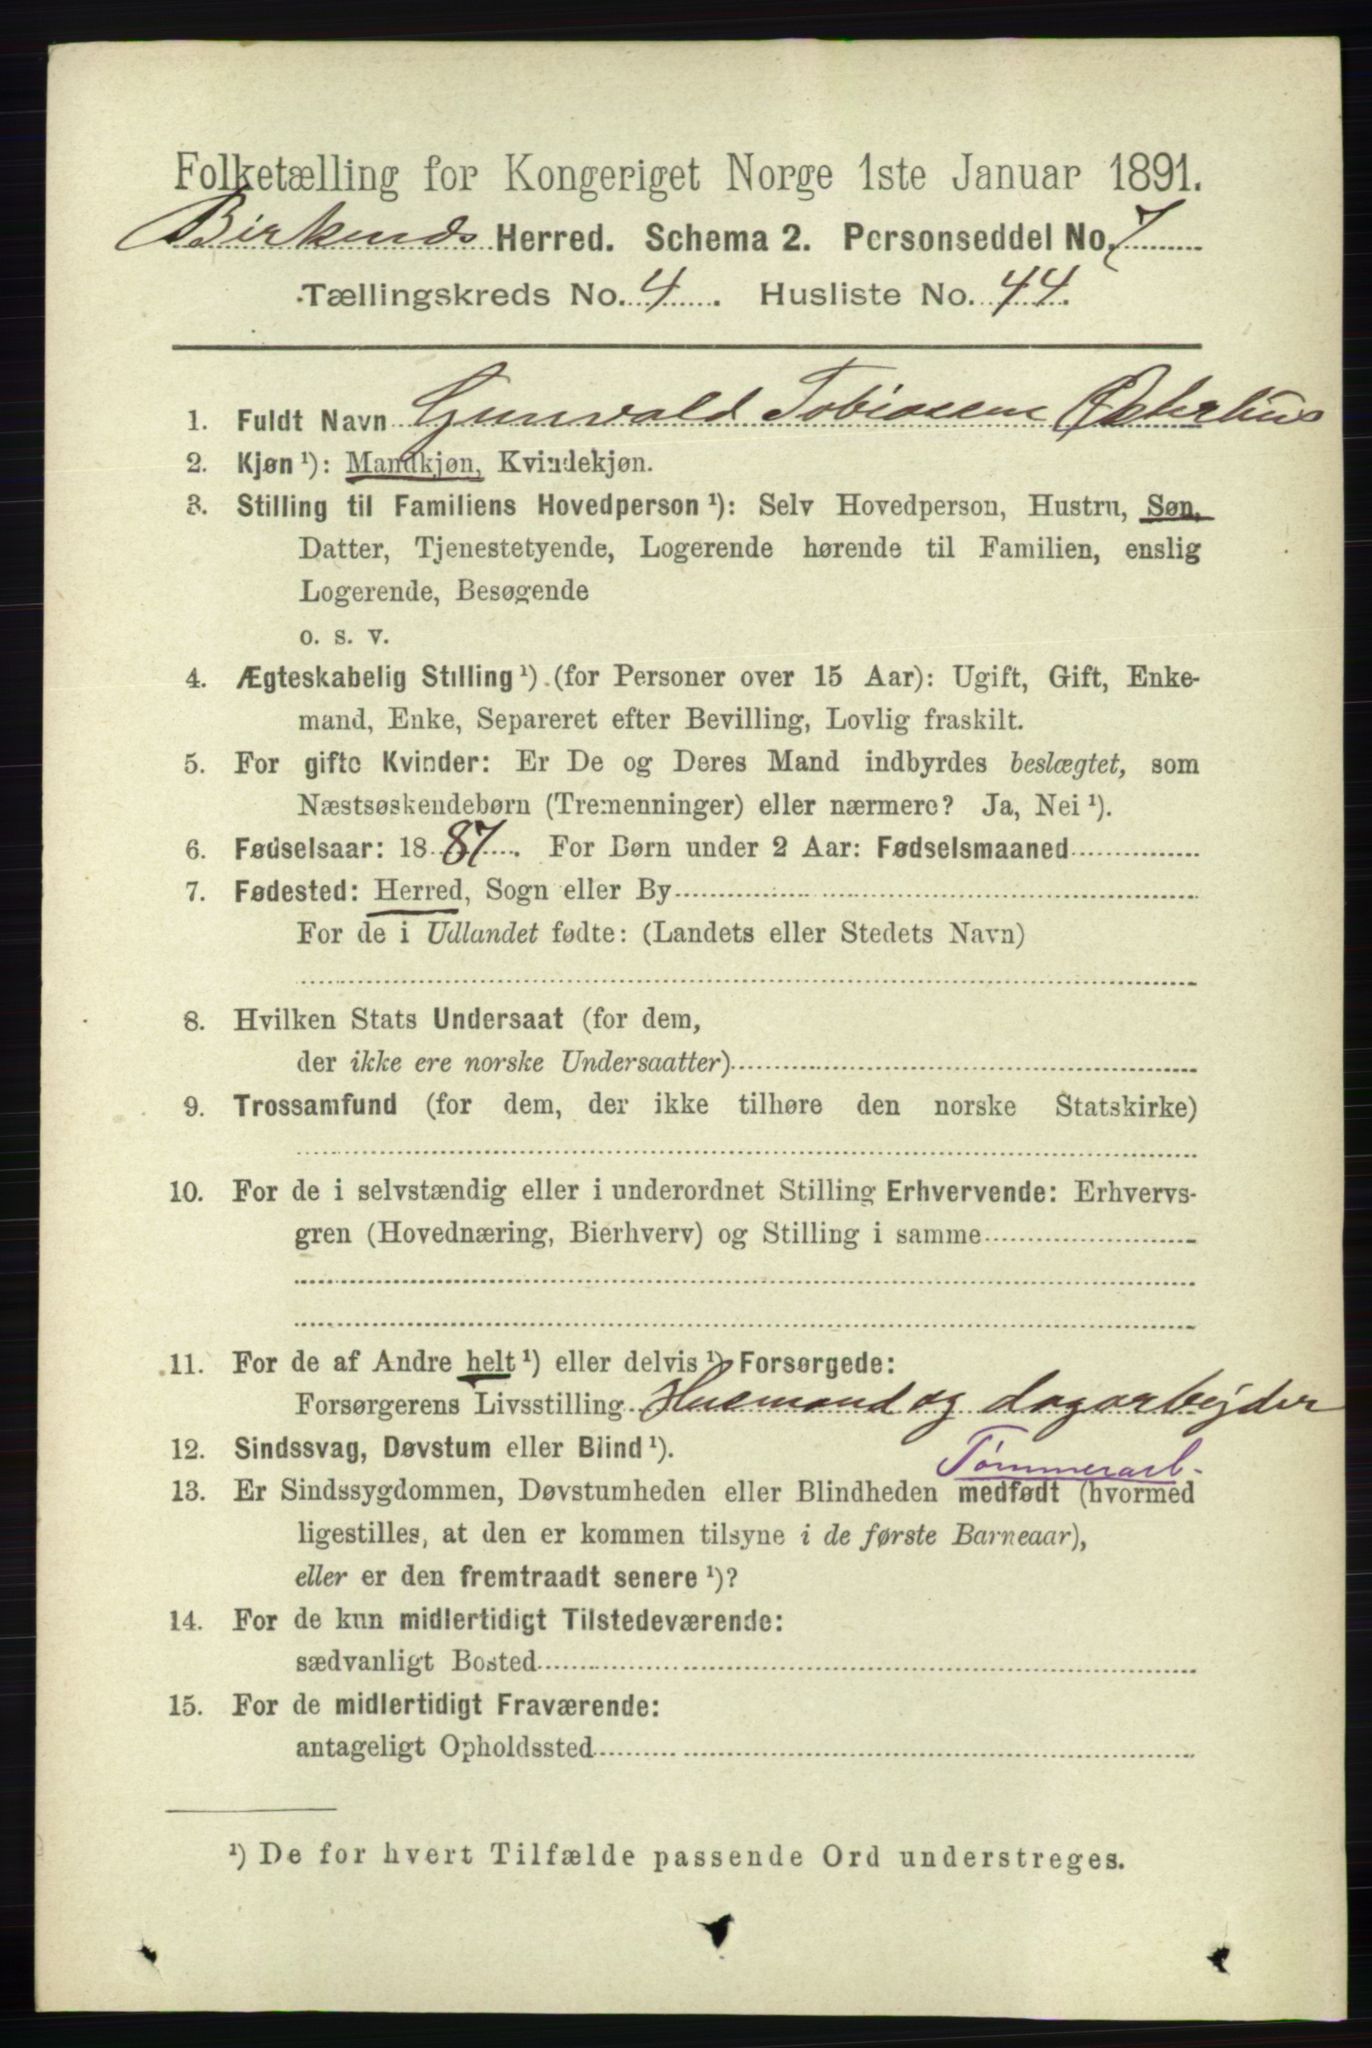 Folketælling for Kongeriget Norge 1ste Januar 1891.
Birkenæs Herred. Schema 2. Personseddel No. 7
Tællingskreds No. 4. Husliste No. 44.
1. Fuldt Navn Gunvald Tobiasen
2. Kjøn ¹): Mandkjøn, Kvindekjøn.
3. Stilling til Familiens Hovedperson ¹): Selv Hovedperson, Hustru, Søn,
Datter, Tjenestetyende, Logerende hørende til Familien, enslig
Logerende, Besøgende
o. s. v.
4. Ægteskabelig Stilling ¹) (for Personer over 15 Aar): Ugift, Gift, Enke-
mand, Enke, Separeret efter Bevilling, Lovlig fraskilt.
5. For gifte Kvinder: Er De og Deres Mand indbyrdes beslægtet, som
Næstsøskendebørn (Tremenninger) eller nærmere? Ja, Nei ¹).
6. Fødselsaar: 1887. For Børn under 2 Aar: Fødselsmaaned
7. Fødested: Herred, Sogn eller By
For de i Udlandet fødte: (Landets eller Stedets Navn)
8. Hvilken Stats Undersaat (for dem,
der ikke ere norske Undersaatter)
9. Trossamfund (for dem, der ikke tilhøre den norske Statskirke)
10. For de i selvstændig eller i underordnet Stilling Erhvervende: Erhvervs-
gren (Hovednæring, Bierhverv) og Stilling i samme
11. For de af Andre helt ¹) eller delvis ¹) Forsørgede:
Forsørgerens Livsstilling Husmand og dagarbejder
12. Sindssvag, Døvstum eller Blind ¹).
Tømmerarb.
13. Er Sindssygdommen, Døvstumheden eller Blindheden medfødt (hvormed
ligestilles, at den er kommen tilsyne i de første Barneaar),
eller er den fremtraadt senere ¹)?
14. For de kun midlertidigt Tilstedeværende:
sædvanligt Bosted
15. For de midlertidigt Fraværende:
antageligt Opholdssted
¹) De for hvert Tilfælde passende Ord understreges.